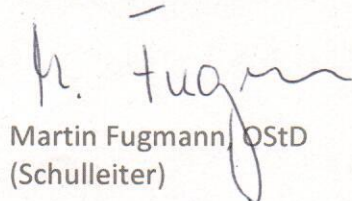 M. Fugmann
Martin Fugmann, OStD
(Schulleiter)